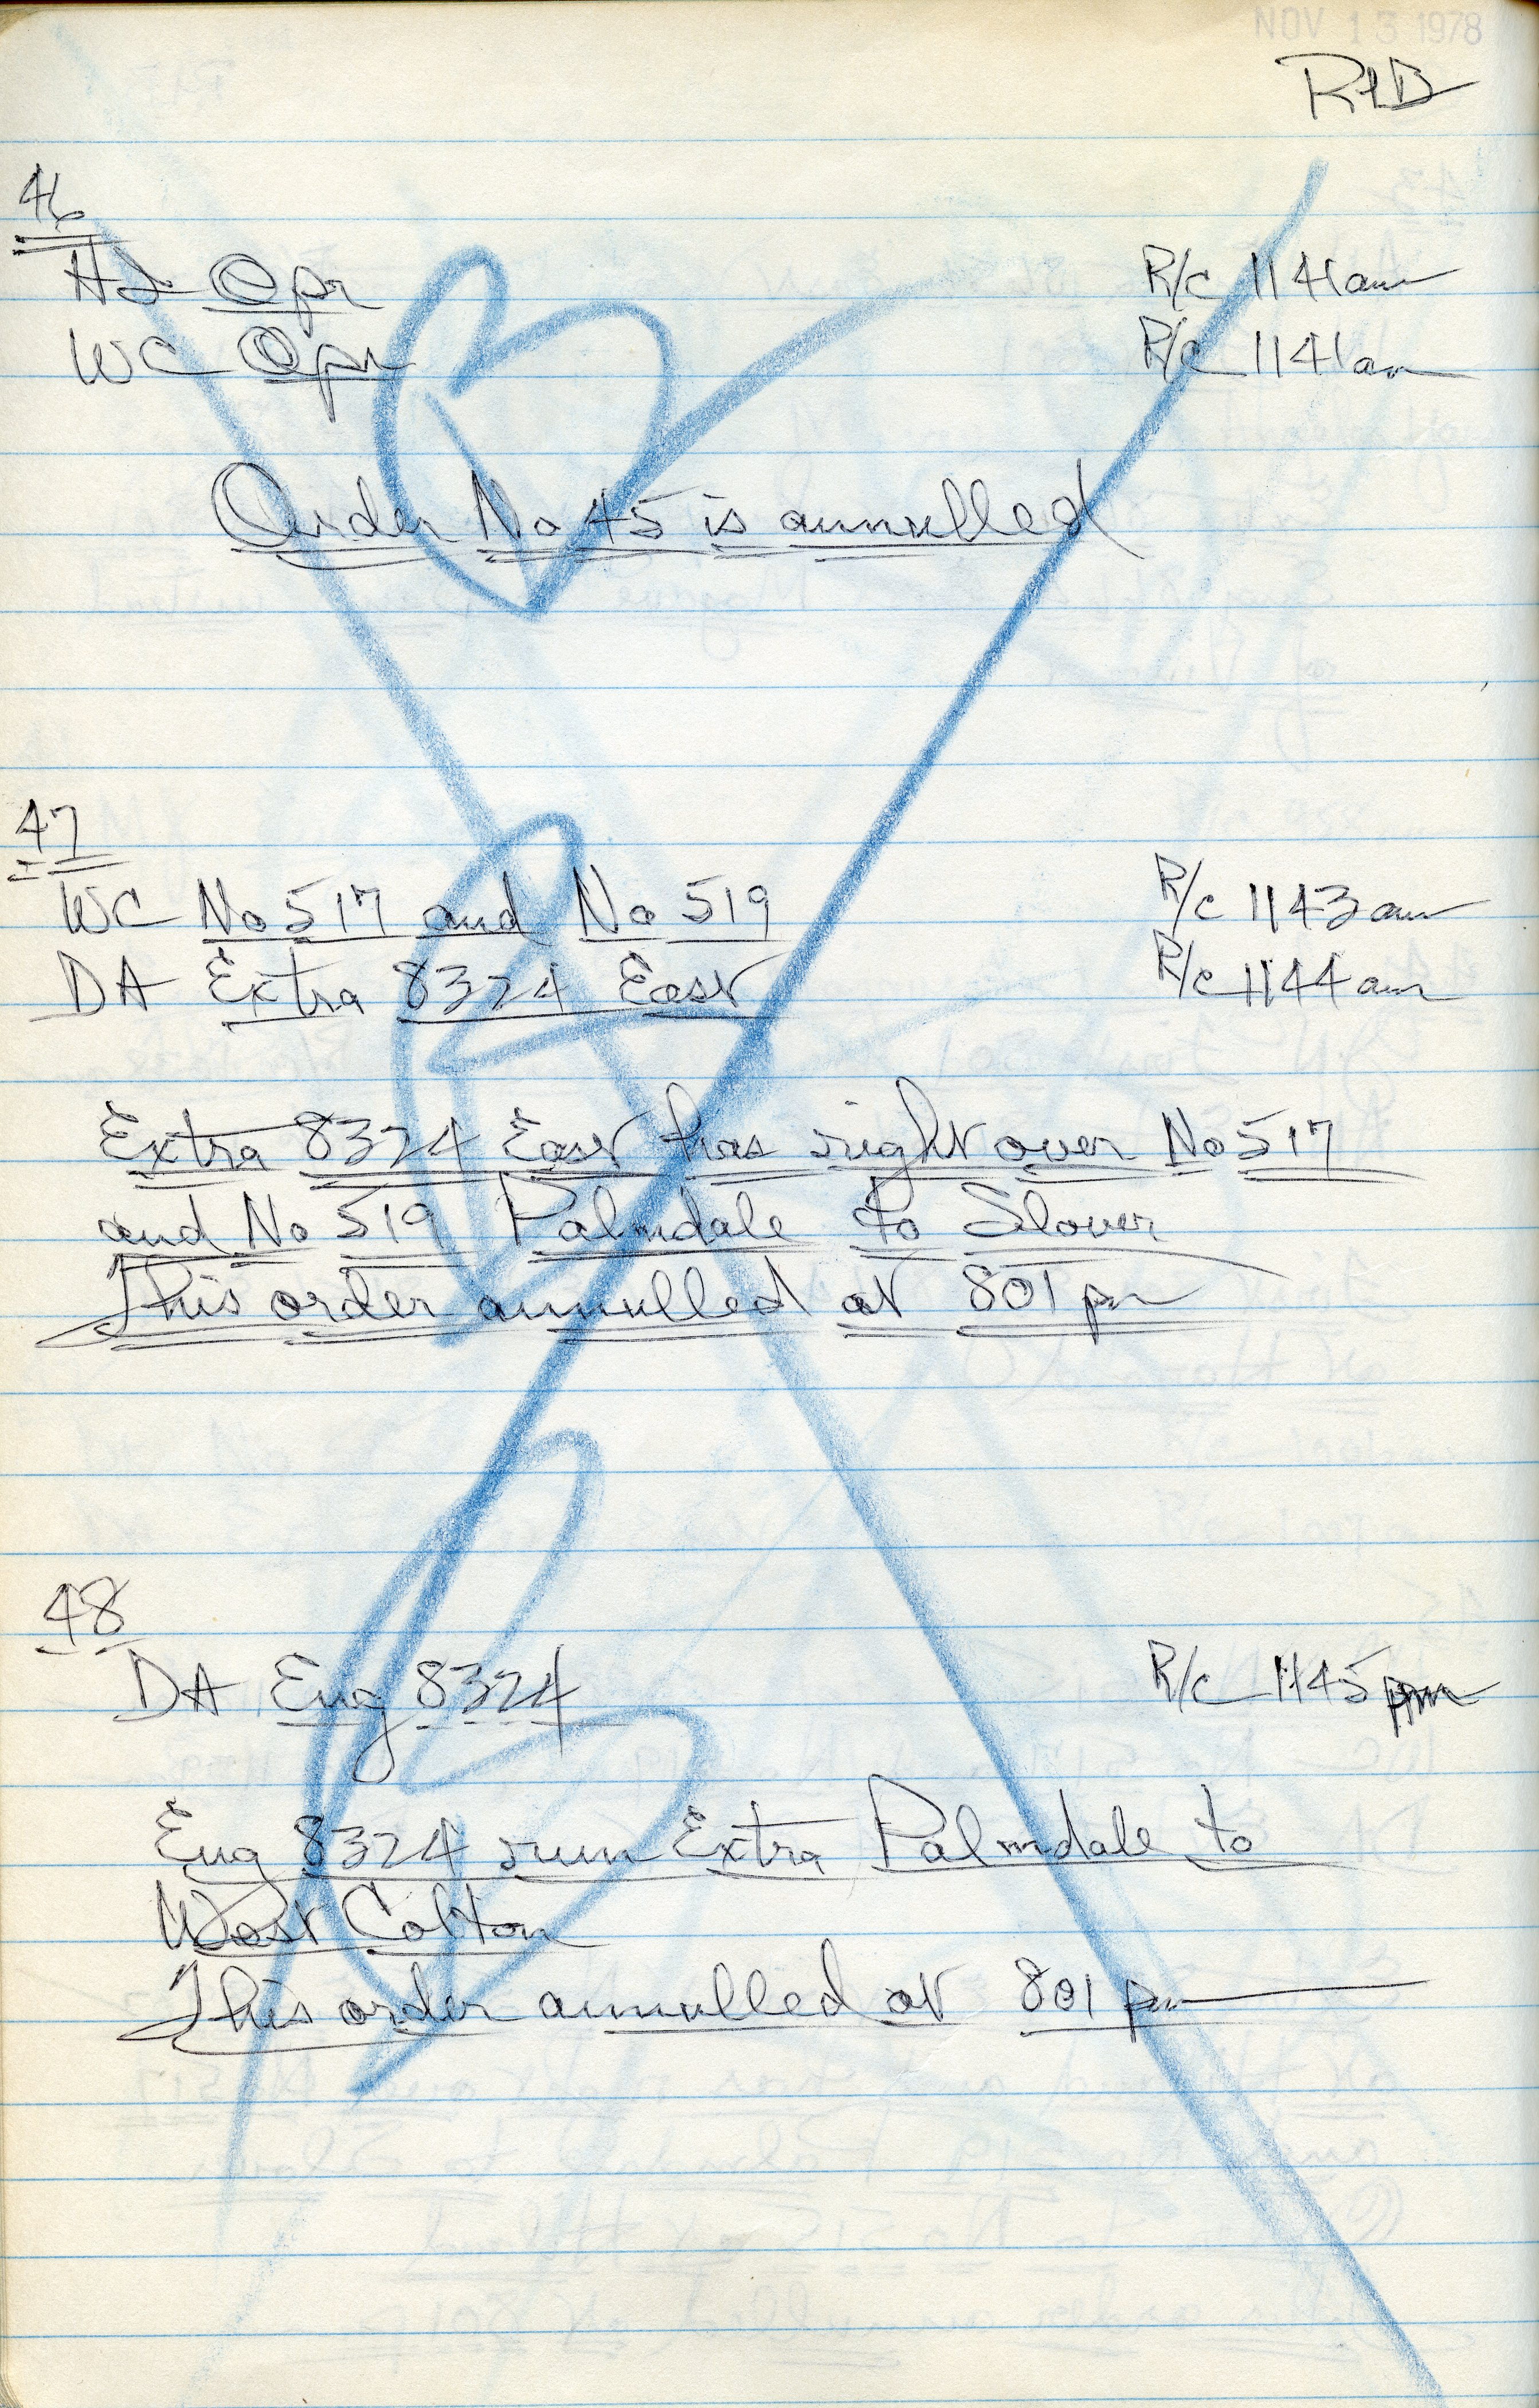 NOV 13 1978
RHB
46
HI Opr R/c 1141am
WC Opr R/c 1141am
Order No 45 is annulled
47
WC No 517 and No 519 R/c 1143am
DA Extra 8324 East R/c 1144am
Extra 8324 East has right over No 517
and No 519 Palmdale to Slover
This order annulled at 801 pm
48
DA Eng 8324 R/c 1145pm
Eng 8324 run Extra Palmdale to
West Colton
This order annulled at 801 pm